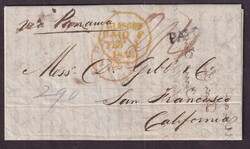 via Panama
PAID
PAID
Messrs. D. Gibb & Co
San Francisco
California
290